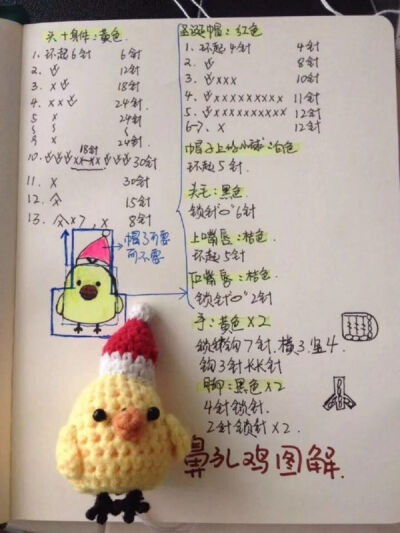 头+身体：黄色
1、环起6针 6针
2、V 12针
3、xV 18针
4、xxV 24针
5 x 24针
9 x 24针
10、VVVxx~xxVVV 30针
18针
11、x 30针
12、A 15针
13、Ax7,x 8针
帽子可要
可不要
圣诞帽：红色
1、环起4针 4针
2、V 8针
3、Vxxx 10针
4、Vxxxxxxxxx 11针
5、Vxxxxxxxxxx 12针
6→、x 12针
帽子上的小球：白色
环起5针
头毛：黑色
锁针"0"6针
上嘴唇：桔色
环起5针
下嘴唇：桔色
锁针"0"2针
手：黄色×2
锁针钩7针,横3,竖4.
钩3针
脚：黑色×2
4针锁针.
2针锁针×2.
鼻孔鸡图解.